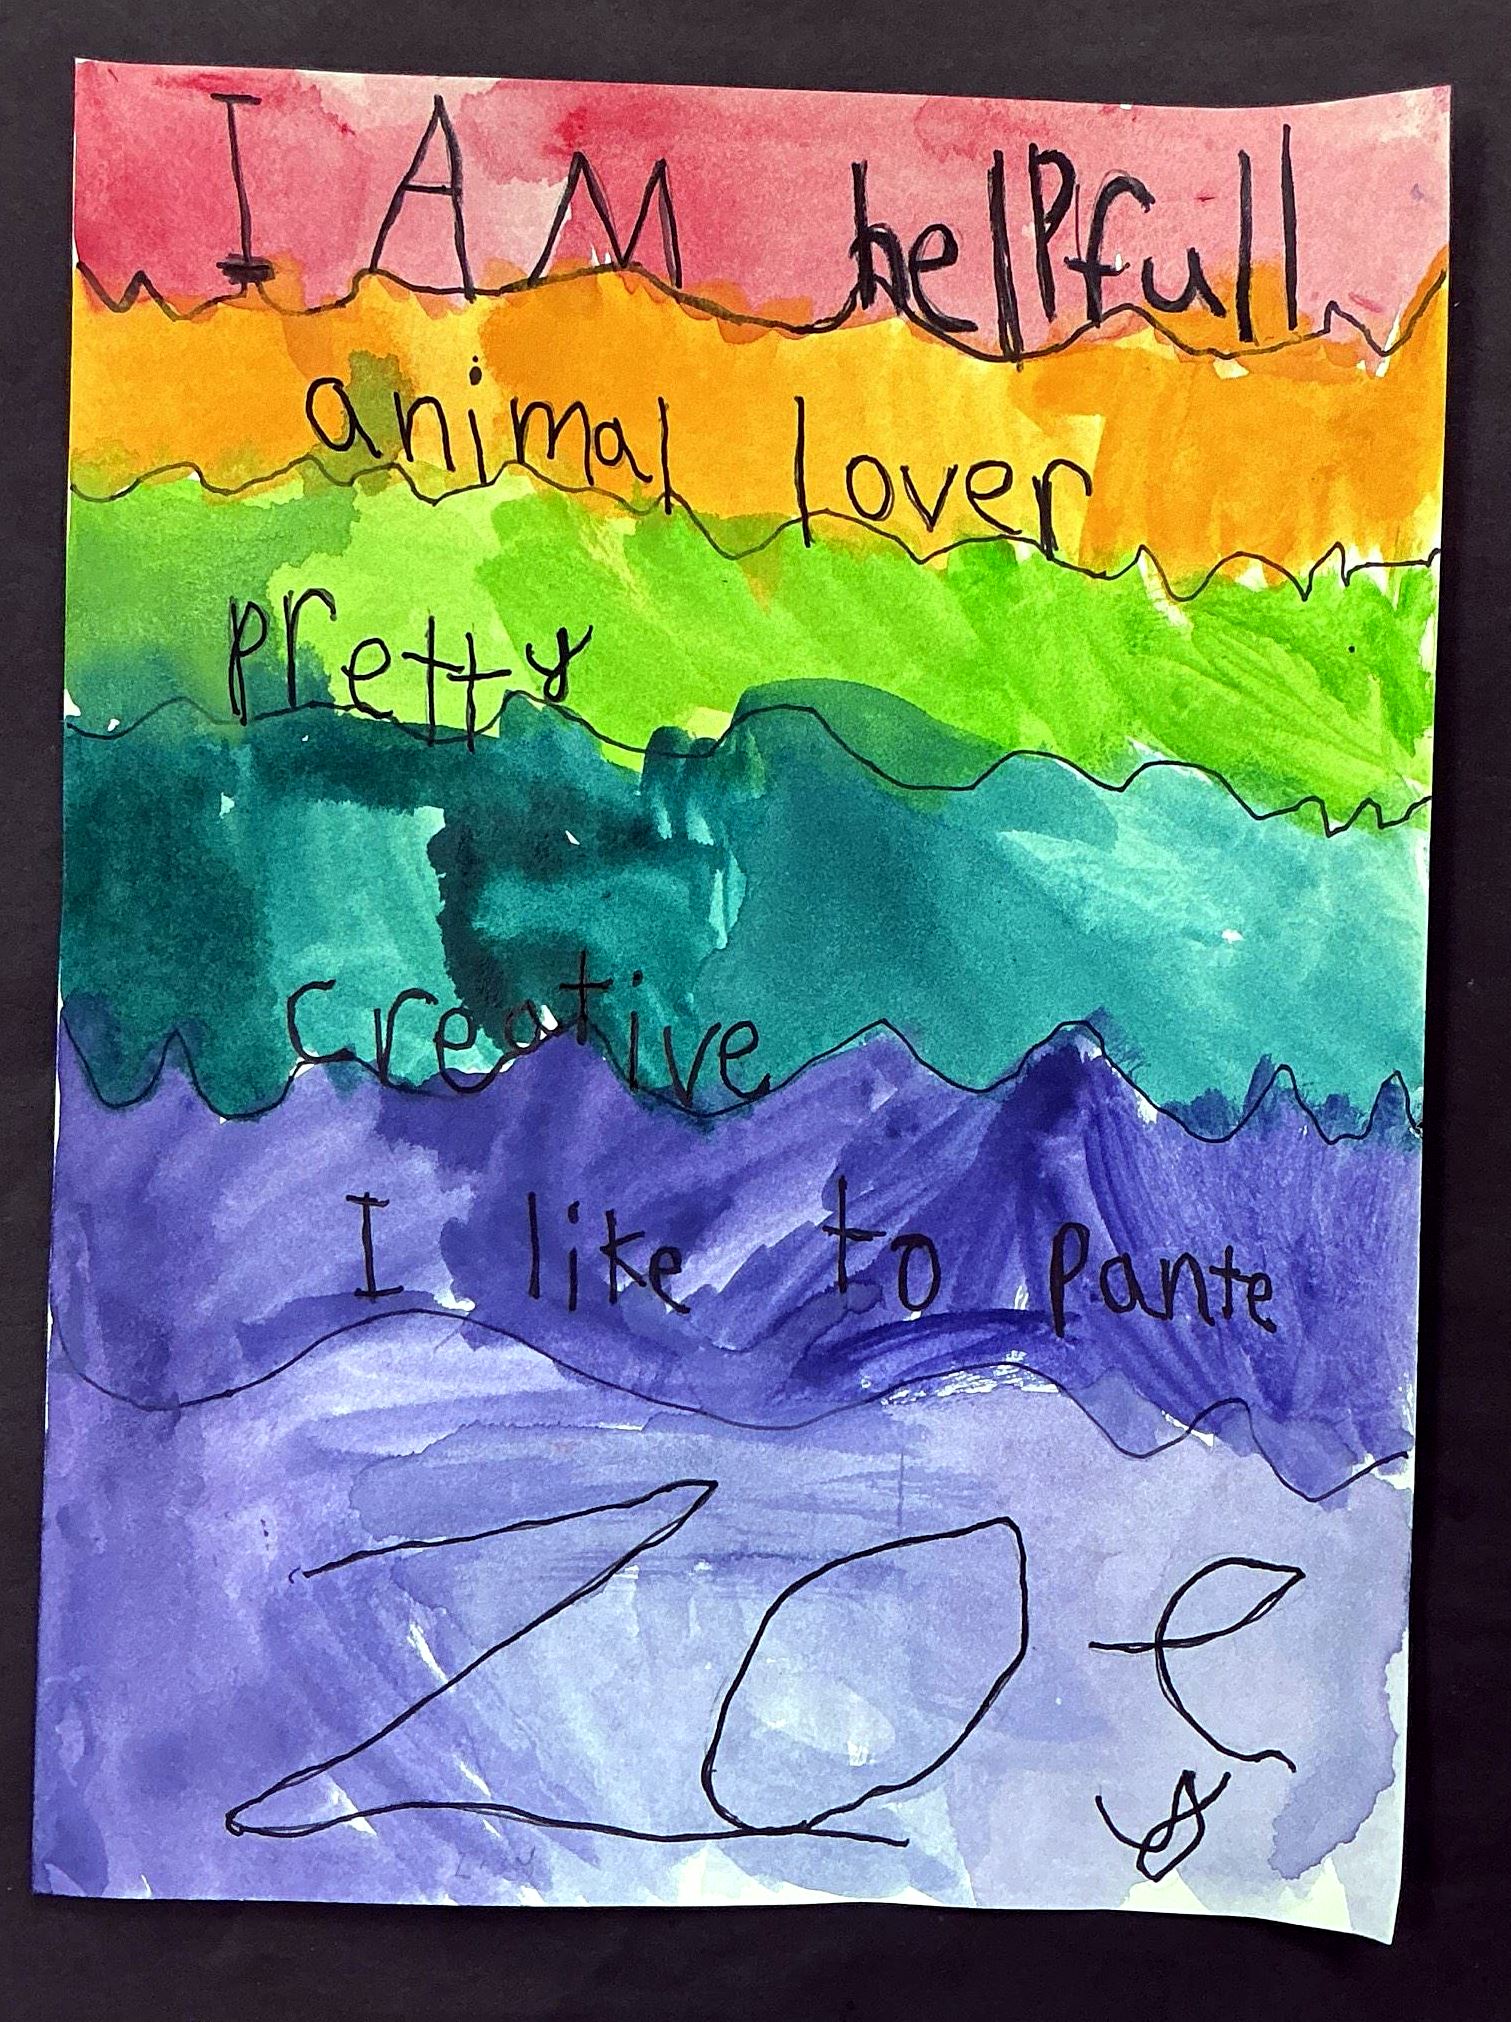 I AM helpfull
animal lover
pretty
creative
I like to pante
Zoe